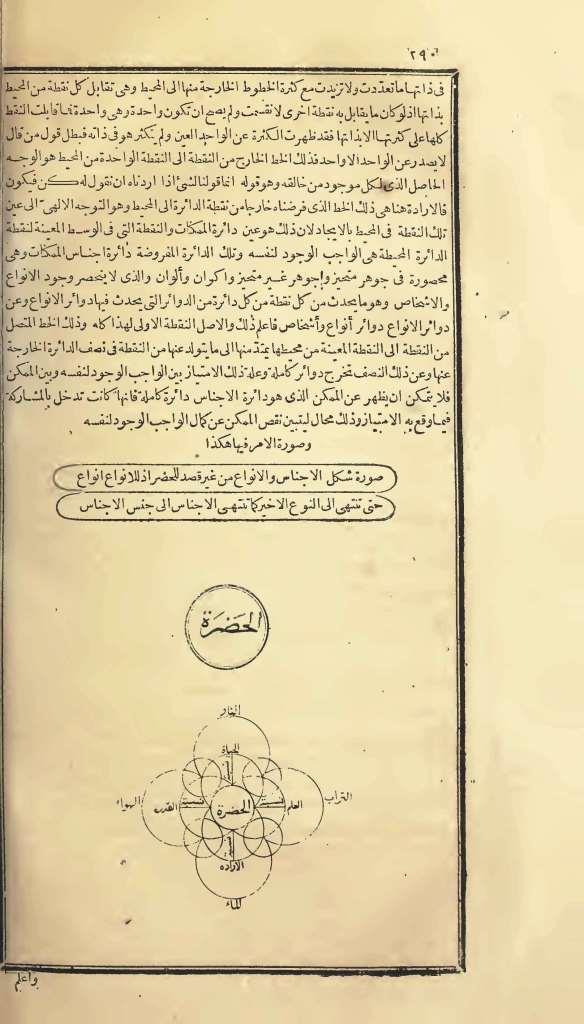 ٢٩٠
فى ذاتها ما تعددت ولا تزيدت مع كثرة الخطوط الخارجة منها الى المحيط وهى تقابل كل نقطة من المحيط
بذاتها اذ لو كان ما يقابل به نقطة اخرى لانقسمت ولم يصح ان تكون واحدة وهى واحدة فما قابلت النقط
كلها على كثرتها الا بذاتها فقد ظهرت الكثرة عن الواحد العين ولم يتكثر هو فى ذاته فبطل قول من قال
لا يصدر عن الواحد الا واحد فذلك الخط الخارج من النقطة الى النقطة الواحدة من المحيط هو الوجه
الحاصل الذى لكل موجود من خالقه وهو قوله انما قولنا لشئ اذا اردناه ان نقول له كن فيكون
فالارادة هنا هى ذلك الخط الذى فرضناه خارجا من نقطة الدائرة الى المحيط وهو التوجه الالهى الى عين
تلك النقطة فى المحيط بالايجاد لان ذلك هو عين دائرة الممكنات والنقطة التى فى الوسط المعينة لنقطة
الدائرة المحيطة هى الواجب الوجود لنفسه وتلك الدائرة المفروضة دائرة اجناس الممكنات وهى
محصورة فى جوهر متحيز وجوهر غير متحيز واكوان وألوان والذى لا ينحصر وجود الانواع
والاشخاص وهو ما يحدث من كل نقطة من كل دائرة من الدوائر التى يحدث فيها دوائر الانواع وعن
دوائر الانواع دوائر أنواع وأشخاص فاعلم ذلك والاصل النقطة الاولى لهذا كله وذلك الخط المتصل
من النقطة الى النقطة المعينة من محيطها يمتد منها الى ما يتولد عنها من النقطة فى نصف الدائرة الخارجة
عنها وعن ذلك النصف تخرج دوائر كاملة وعلة ذلك الامتياز بين الواجب الوجود لنفسه وبين الممكن
فلا يتمكن ان يظهر عن الممكن الذى هو دائرة الاجناس دائرة كاملة فانها كانت تدخل بالمشاركة
فيما وقع به الامتياز وذلك محال ليتبين نقص الممكن عن كمال الواجب الوجود لنفسه
وصورة الامر فيها هكذا
صورة شكل الاجناس والانواع من غير قصد للحضر اذ للانواع انواع
حتى تنتهى الى النوع الاخير كما تنتهى الاجناس الى جنس الاجناس
الحضرة
النار
الحياة
التراب
العلم
نسبة
الحضرة
نسبة
القدرة
الهواء
الاراده
الماء
واعلم